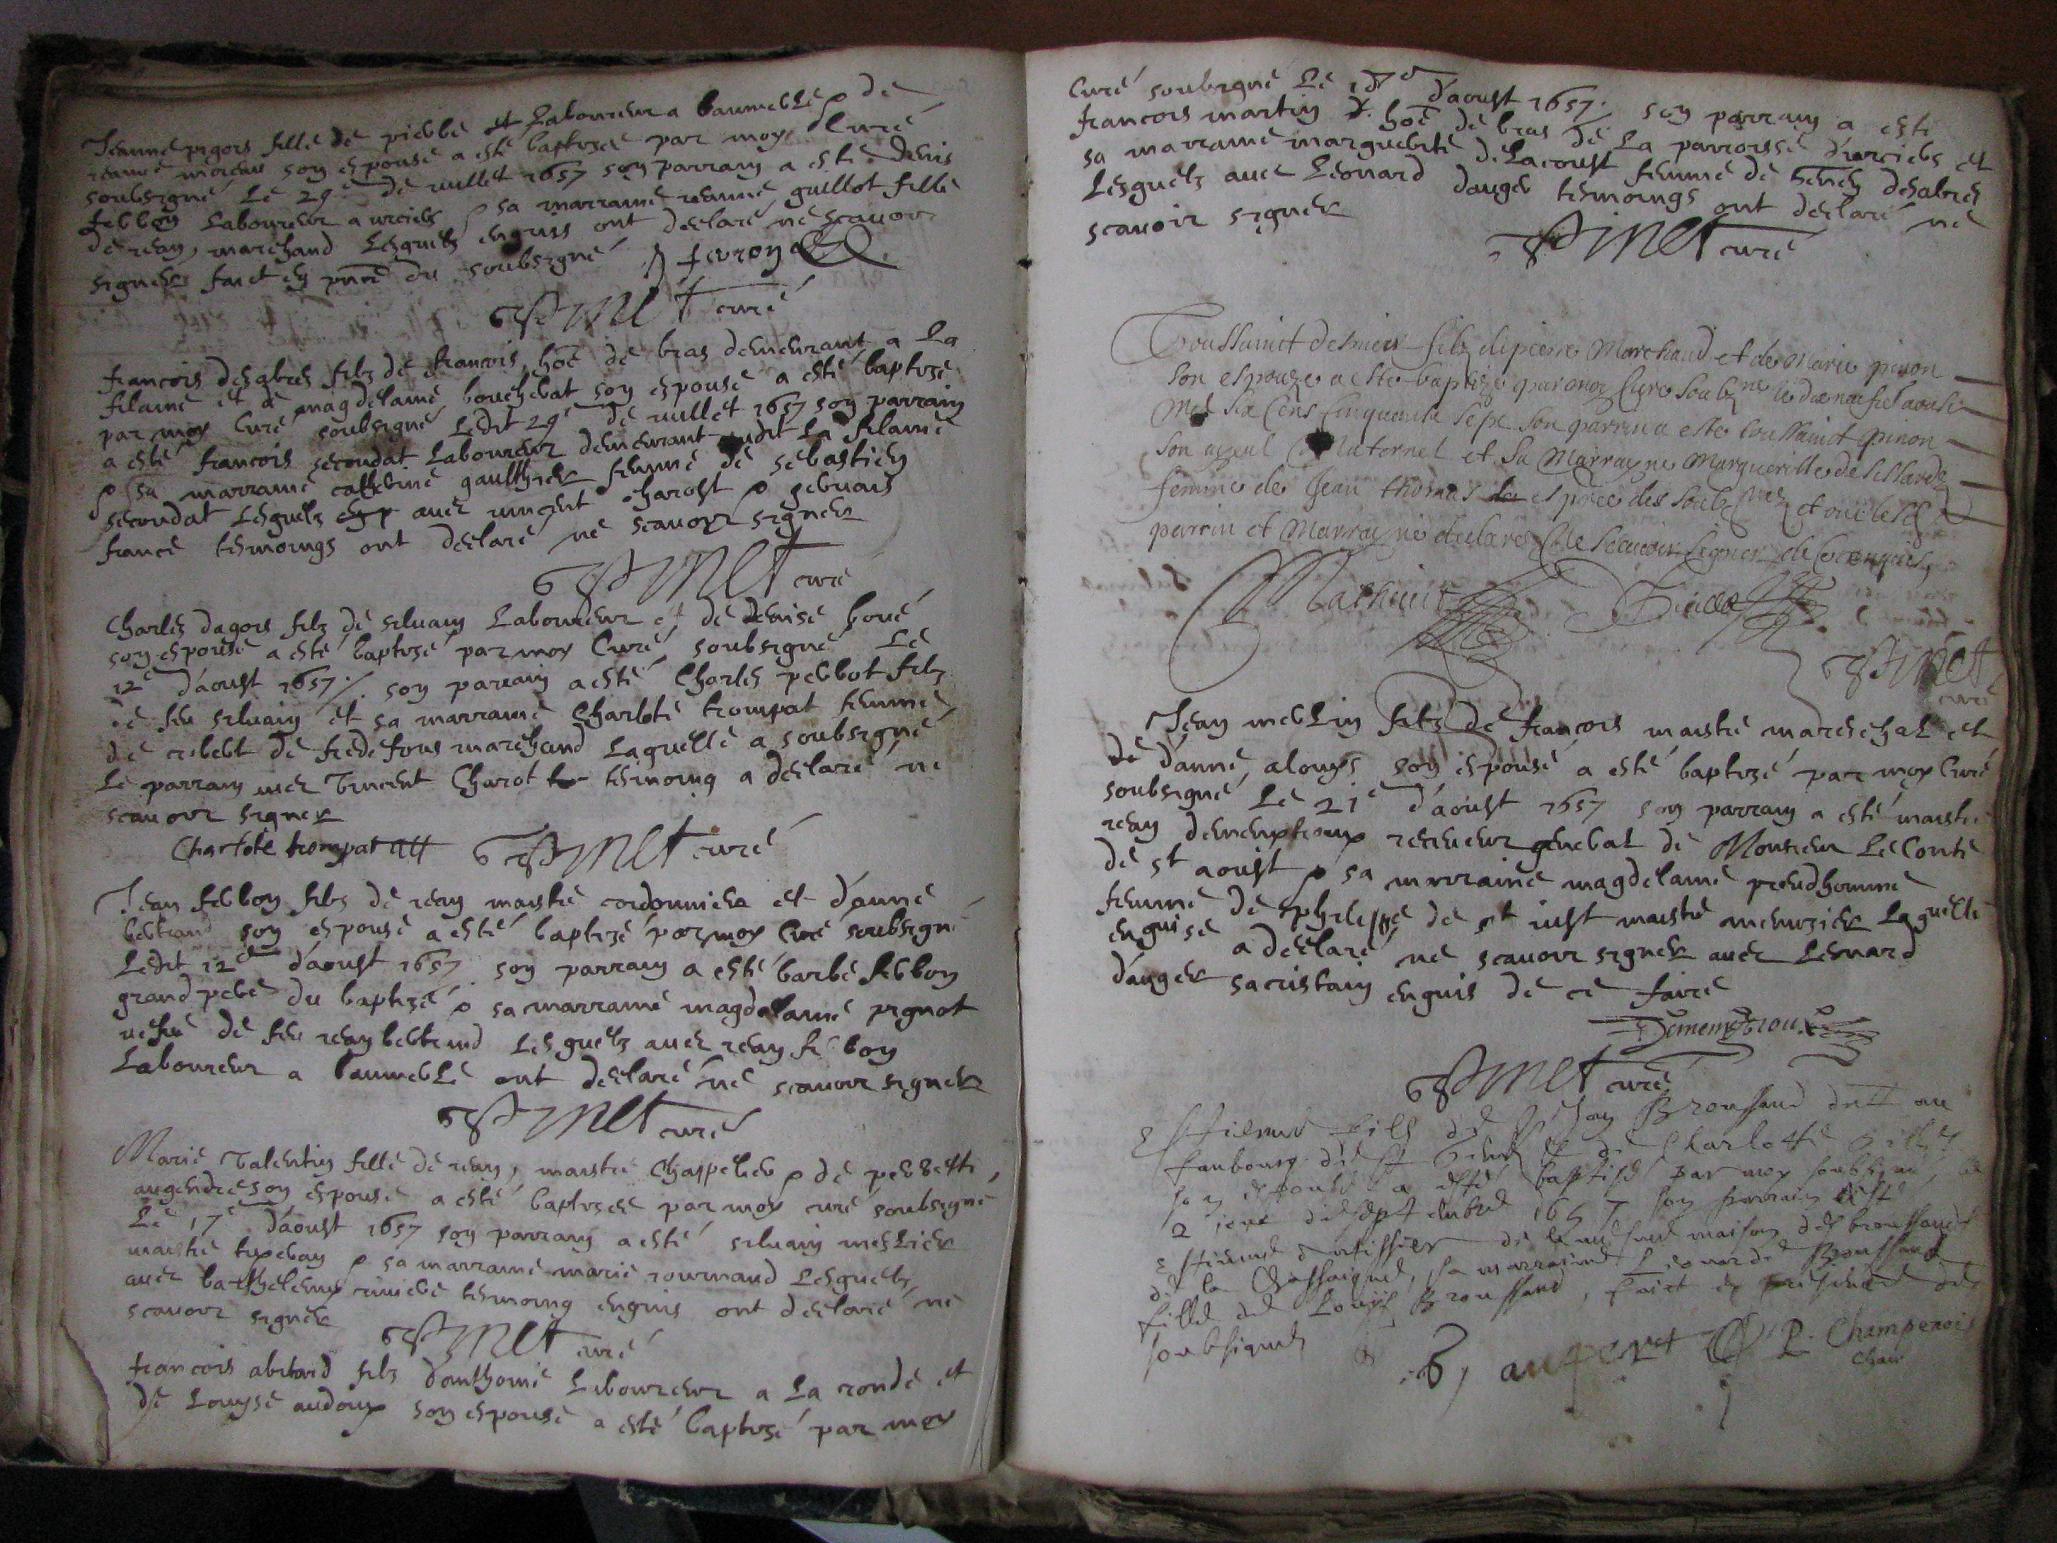 Jeanne pigois fille de pierre Laboureur a Laumerle & de
jeanne moreau son espouse a esté baptizee par moy Curé
soubsigné Le 29e de iullet 1657 son parrain a esté denis
febbon Laboureur a urciers & sa marraine jeanne guillot fille
de jean, marchand Lesquels enquis ont declaré ne scavoir
signer faict en pnce du soubsigné
Pinet curé
francois desabres filz de francois, hoe de bras demeurant a La
filaine et de magdelaine boucherat son espouse a esté baptizé
par moy Curé soubsigné Ledit 29e de iullet 1657 son parrain
a esté francois secondat Laboureur demeurant audit La filaine
& sa marraine catherine gaulthier femme de sebastien
secondat Lesquels avec vincent charost & gervais
france tesmoings ont declaré ne scavoir signer
Pinet curé
Charles dagois filz de silvain Laboureur et de denise boué
son espouse a esté baptizé par moy Curé soubsigné Le
12e d'aoust 1657 /. son parrain a esté Charles perrot filz
de feu silvain et sa marraine Charlote trompat femme
de robert de fredefons marchand Laquelle a soubsigné
Le parrain avec Vincent Charot tesmoing a declaré ne
scavoir signer
Charlote trompat
Pinet curé
Jean febbon filz de jean maistre cordonnier et d'anne
bertrand son espouse a esté baptizé par moy Curé soubsigné
Ledit 12e d'aoust 1657 son parrain a esté barbé febbon
grand pere du baptizé & sa marraine magdelaine pignot
vefve de feu jean bertrand Lesquels avec jean febbon
Laboureur a Laumerle ont declaré ne scavoir signer
Pinet curé
Marie Valentin fille de jean, maistre Chappelier & de perrette
augendre son espouse a esté baptizee par moy curé soubsigné
Le 17e d'aoust 1657 son parrain a esté silvain meslier
maistre & sa marraine marie journaud Lesquels
avec barthelemy tesmoing enquis ont declaré ne
scavoir signer
Pinet curé
francois abriand filz d'anthoine Laboureur a La ronde et
de Louyse audoux son espouse a esté baptizé par moy
Curé soubsigné Le d'aoust 1657. son parrain a esté
francois martin hoe de bras de La parroisse d'urciers et
sa marraine marguerite delacoust femme de desabres
Lesquels avec Leonard dauger tesmoings ont declaré ne
scavoir signer
Pinet curé
Toussainct desmiers filz de pierre Marchand et de Marie pinon
son espouze a este baptizé par moy Curé soubzne le dixneufe aoust
Mil six Cens Cinquante sept son parrin a este toussainct pinon
son ayeul Maternel et sa Marrayne Marguerille de
femme de Jean thomas es pnce des soubznez et ont lesd
parrin et Marrayne declaré Ne scavoir signer de ce enquis
Mathieu
Pinet
curé
Jean merlin filz de francois maistre mareschal et
de d'anne alouys son espouse a esté baptizé par moy Curé
soubsigné Le 21e d'aoust 1657 son parrain a esté maistre
jean dementhoux recepveur general de Monsieur Le Conte
de st aoust & sa marraine magdelaine preudhomme
femme de philippe de st iust maistre menuzier Laquelle
enquise a declaré ne scavoir signer avec Leonard
dauger sacristain enquis de ce faire
Pinet curé
Estienne fils de Jean Broussaud dutt au
faubourg de St et de Charlotte
son espouse a esté baptisé par moy soubsigné le
2 jour de septembre 1657 son parrain a esté
Estienne de maison des broussauds
de la Chassaigne, sa marraine Lienarde Broussaud
fille de Louys Broussaud, faict en presence des
soubsignés
P. Champenois